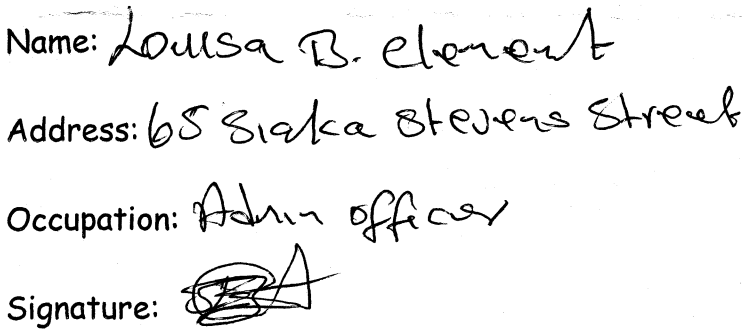 Name: Louisa B. Clement
Address: 65 Siaka Stevens Street
Occupation: Admin officer
Signature: